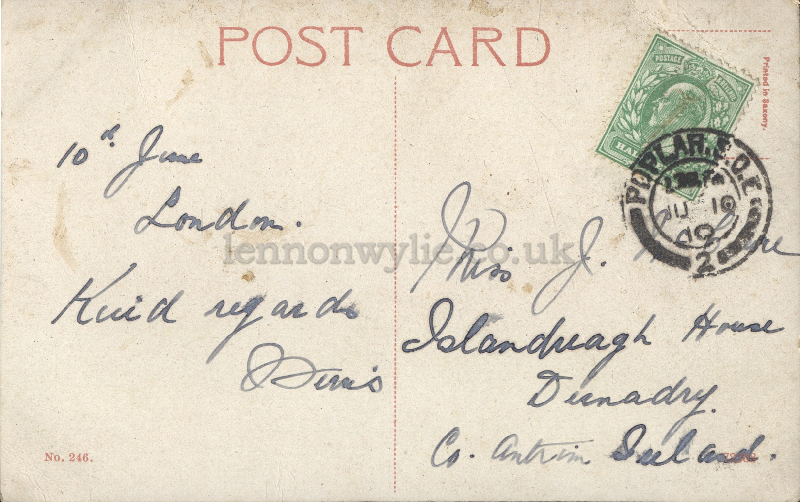 POST CARD
Printed in Saxony.
POSTAGE
POPLAR. S.O.E
JU 10
10
2
10th June
London.
Kind regards
lennonwylie.co.uk
Miss J.
Islandreagh House
Dunadry.
Co. Antrim Ireland.
No. 246.